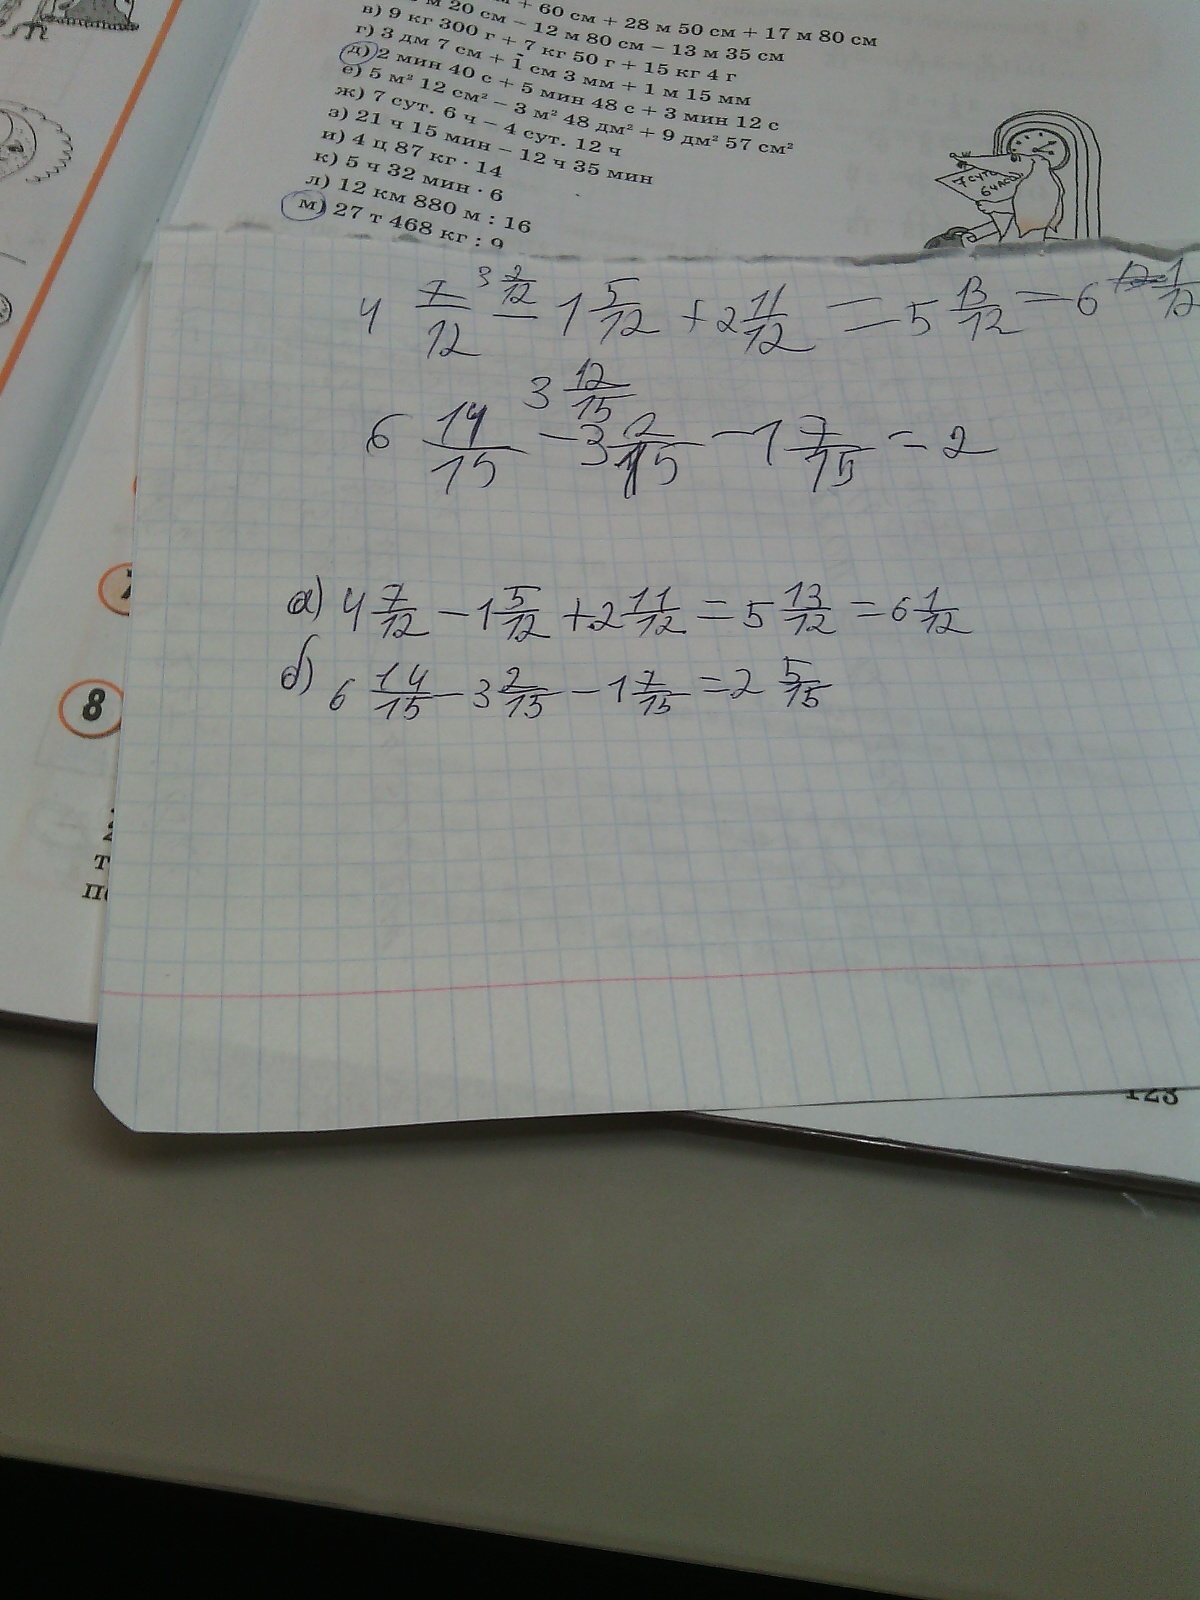 м 20 см − 12 м 80 см − 13 м 35 см
+ 60 см + 28 м 50 см + 17 м 80 см
в) 9 кг 300 г + 7 кг 50 г + 15 кг 4 г
г) 3 дм 7 см + 1 см 3 мм + 1 м 15 мм
д) 2 мин 40 с + 5 мин 48 с + 3 мин 12 с
е) 5 м² 12 см² − 3 м² 48 дм² + 9 дм² 57 см²
ж) 7 сут. 6 ч − 4 сут. 12 ч
з) 21 ч 15 мин − 12 ч 35 мин
и) 4 ц 87 кг · 14
к) 5 ч 32 мин · 6
л) 12 км 880 м : 16
м) 27 т 468 кг : 9
7 сут.
6 час.
3 2/12
4 7/12 − 1 5/12 + 2 11/12 = 5 13/12 = 6 1/12
3 12/15
6 14/15 − 3 2/15 − 1 7/15 = 2
7
а) 4 7/12 − 1 5/12 + 2 11/12 = 5 13/12 = 6 1/12
б) 6 14/15 − 3 2/15 − 1 7/15 = 2 5/15
8
123